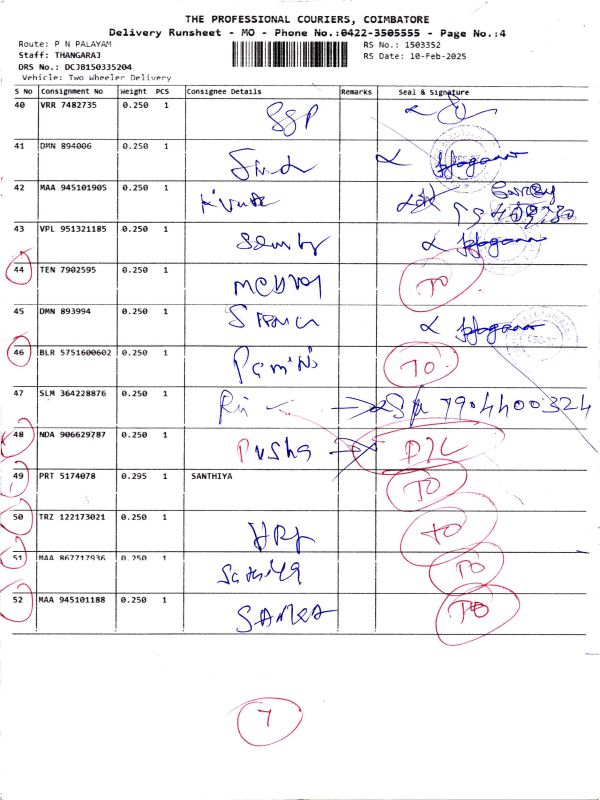 THE PROFESSIONAL COURIERS, COIMBATORE
Delivery Runsheet - MO - Phone No.:0422-3505555 - Page No.:4
Route: P N PALAYAM RS No.: 1503352
Staff: THANGARAJ RS Date: 10-Feb-2025
DRS No.: DCJB150335204
Vehicle: Two Wheeler Delivery
S No Consignment No Weight PCS Consignee Details Remarks Seal & Signature
40 VRR 7482735 0.250 1 SSP
41 DMN 894006 0.250 1
42 MAA 945101905 0.250 1
43 VPL 951321185 0.250 1
44 TEN 7902595 0.250 1 TO
45 DMN 893994 0.250 1
46 BLR 5751600602 0.250 1 TO
47 SLM 364228876 0.250 1 7904400324
48 NDA 906629787 0.250 1 Pusha D/L
49 PRT 5174078 0.295 1 SANTHIYA TO
50 TRZ 122173021 0.250 1 TO
51 MAA 867717936 0.250 1 TO
52 MAA 945101188 0.250 1 TO
7